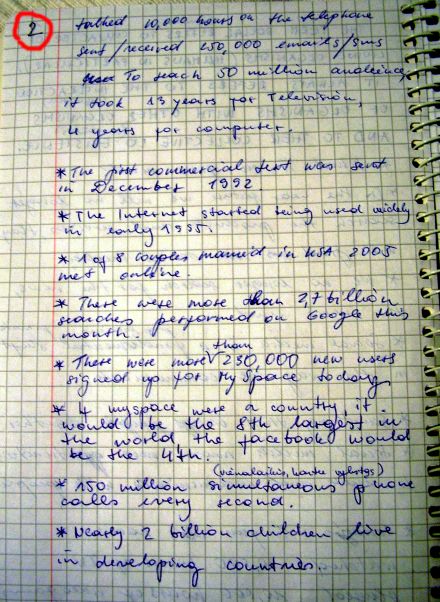 2
talked 10,000 hours on the telephone
sent/received 250,000 emails/sms
To reach 50 million audience,
it took 13 years for Television,
4 years for computer.
* The first commercial text was sent
in December 1992
* The Internet started being used widely
in early 1995.
* 1 of 8 couples married in USA 2005
met online.
* There were more than 2,7 billion
searches performed on Google this
month.
than
* There were more 230,000 new users
signed up for MySpace today
* If myspace were a country, it
would be the 8th largest in
the world, the facebook would
be the 4th.
* 150 million simultaneous phone
calls every second.
* Nearly 2 billion children live
in developing countries.